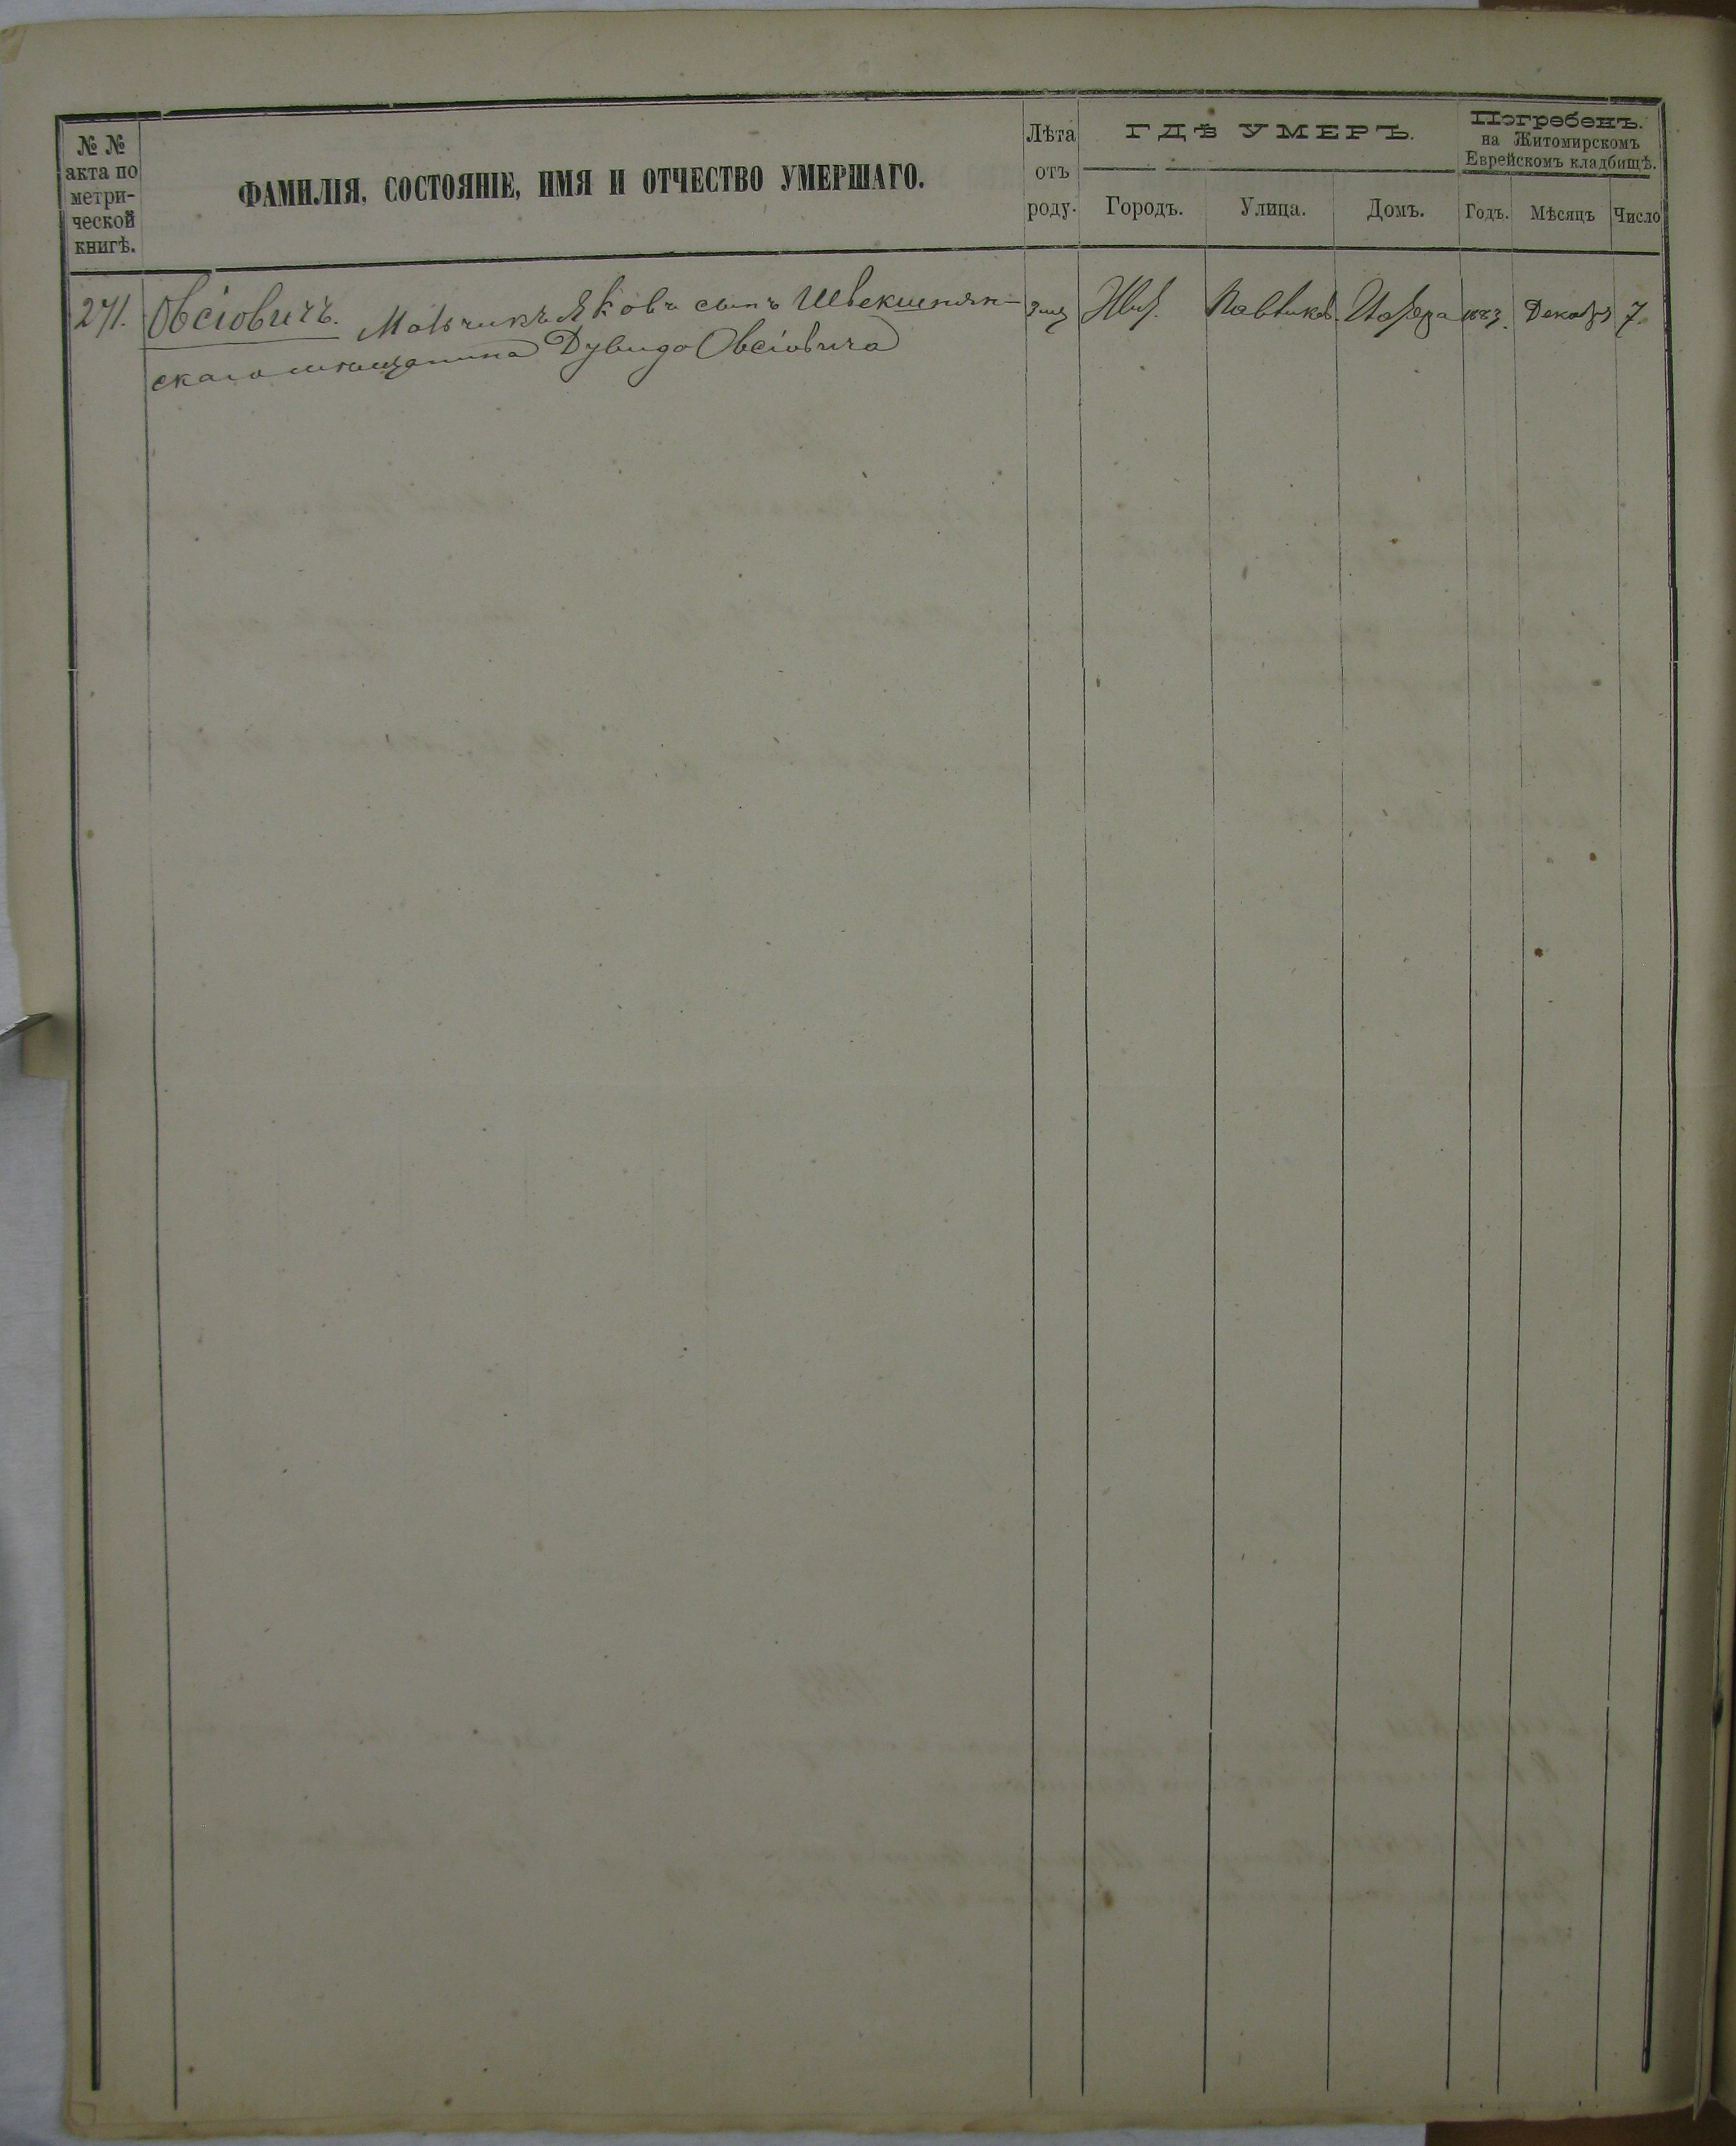 № №
акта по
метри-
ческой
книгѣ.
ФАМИЛІЯ, СОСТОЯНІЕ, ИМЯ И ОТЧЕСТВО УМЕРШАГО.
Лѣта
отъ
роду.
ГДѢ УМЕРЪ.
Городъ.
Улица.
Домъ.
Погребенъ.
на Житомирскомъ
Еврейскомъ кладбищѣ.
Годъ.
Мѣсяцъ
Число
271.
Овсіовичъ. Мальчикъ Яковъ сынъ Швекшнян-
скаго мѣщанина Дувида Овсіовича
Жит.
1883.
Декабря
7.